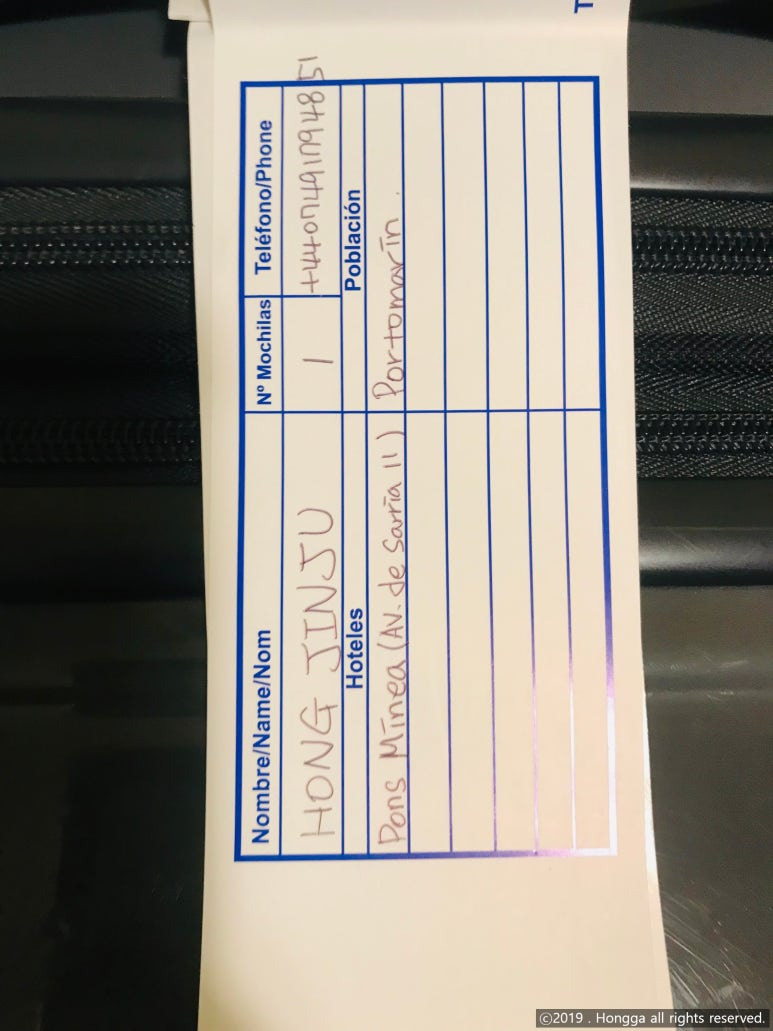 Nombre/Name/Nom Nº Mochilas Teléfono/Phone
HONG JINJU 1 +4407491794851
Hoteles Población
Pons Mínea (Av. de Sarria 11) Portomarín.
T
©2019 . Hongga all rights reserved.